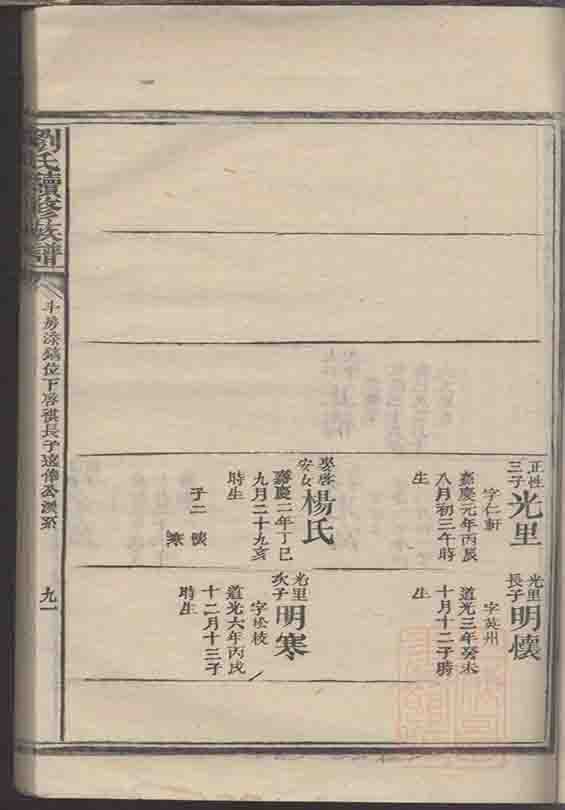 正性
三子
光里
字仁軒
嘉慶元年丙辰
八月初三午時
生
娶
安女
楊氏
嘉慶二年丁巳
九月二十九亥
時生
子二 懷
寒
光里
長子
明懷
字英州
道光三年癸未
十月十二子時
生
光里
次子
明寒
字松枝
道光六年丙戌
十二月十三子
時生
劉氏續修族譜
位下啓祺長子遠
九一